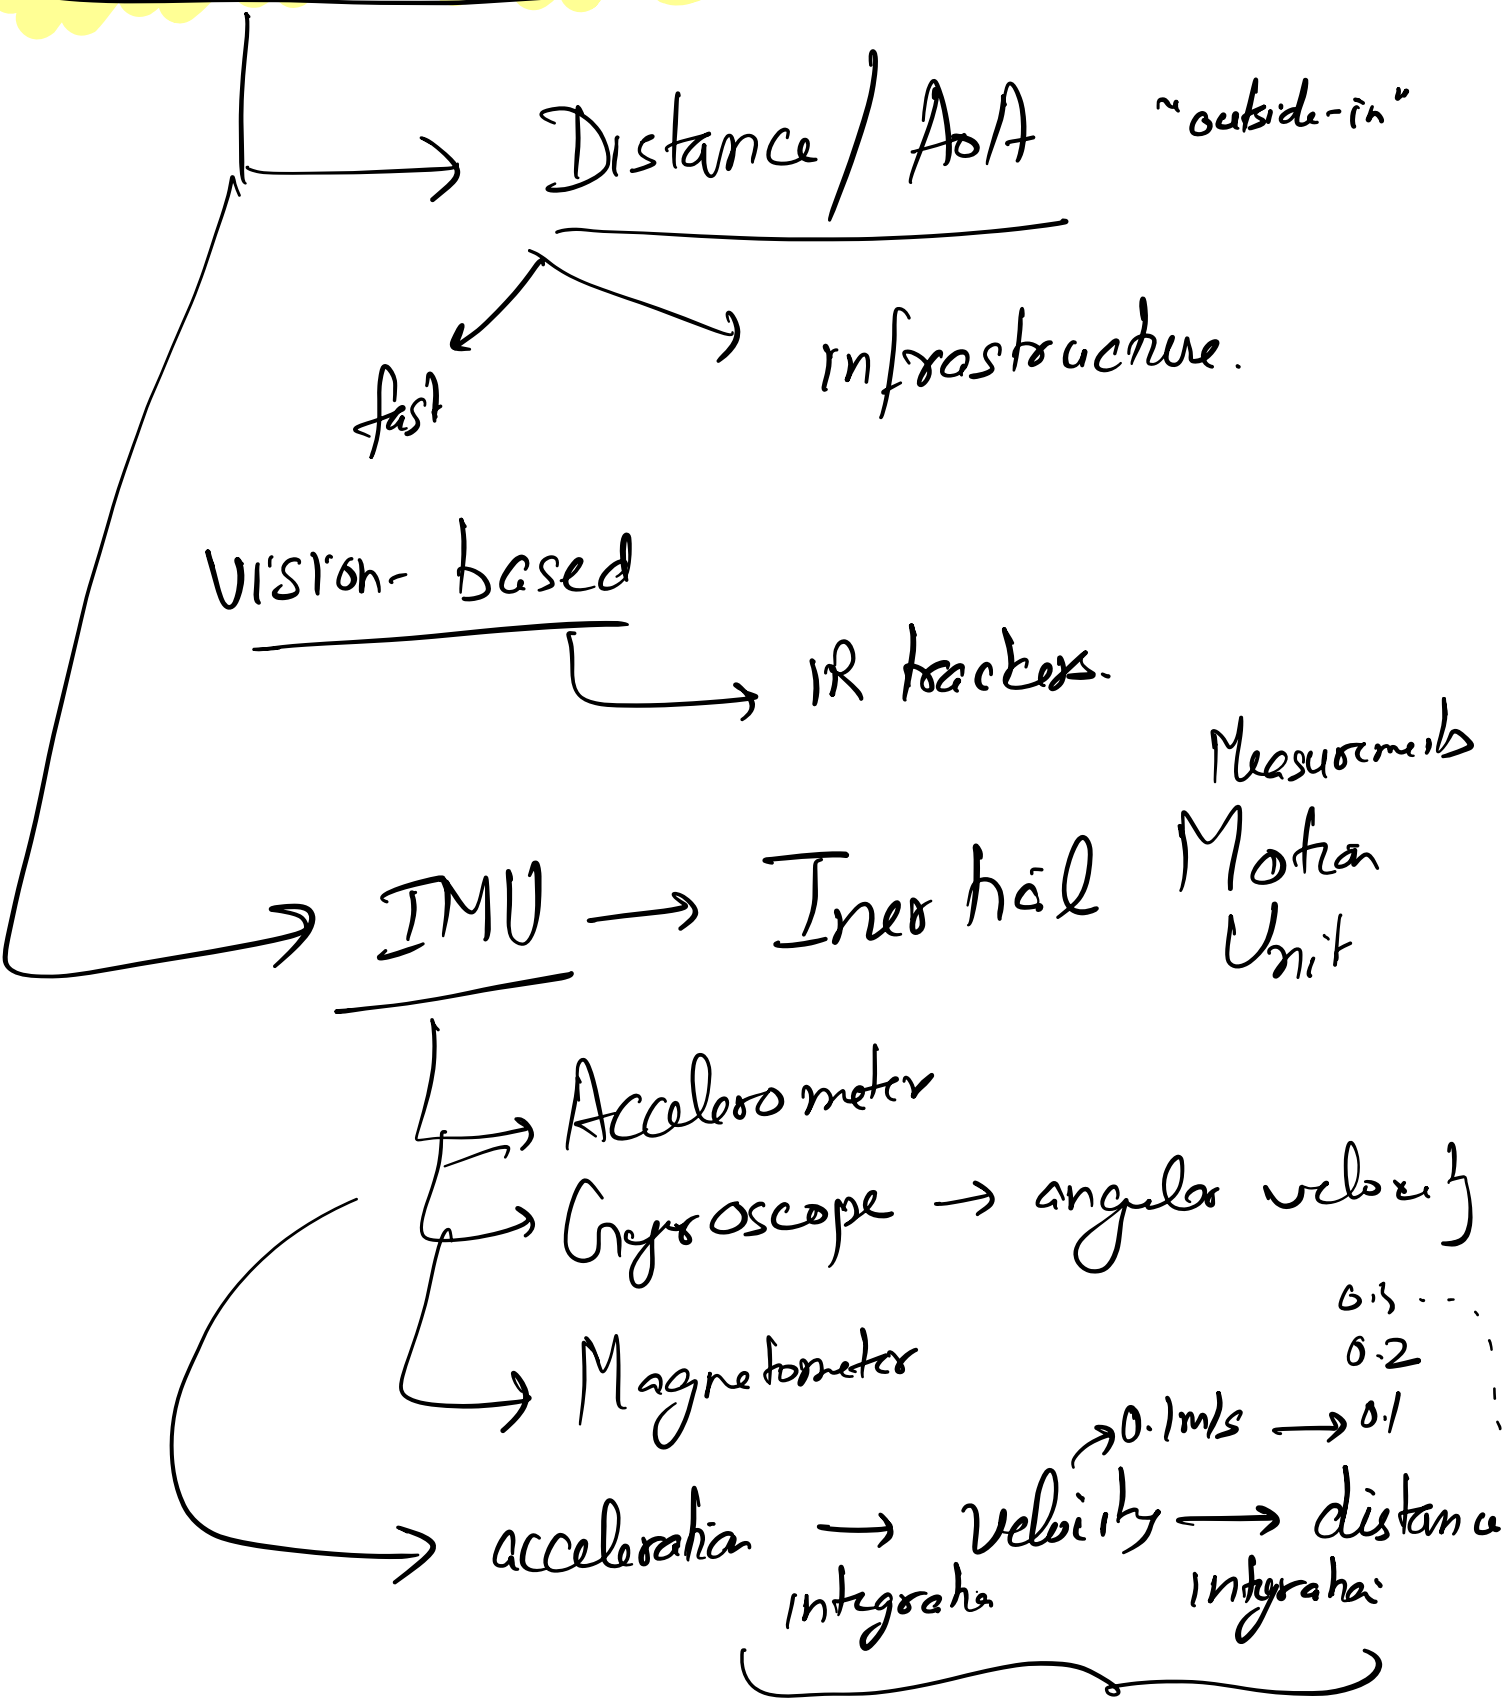 Distance / AoA "outside-in"
fast
infrastructure.
Vision-based
IR trackers.
Measurements
IMU → Inertial Motion
Unit
Accelerometer
Gyroscope → angular velocity
0.3 ....
0.2
Magnetometer
0.1m/s → 0.1
acceleration → velocity → distance
integration integration